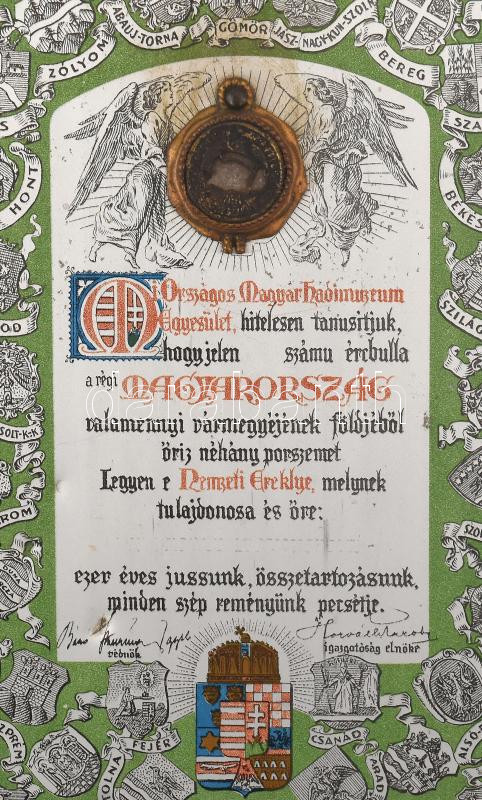 ABAUJ-TORNA
GÖMÖR
JÁSZ-NAGY-KUN-SZOLN
ZÓLYOM
BEREG
HONT
SZA
BÉKÉS
SZILÁG
OD
SOLT-K-K
ROM
Mi Országos Magyar Hadimuzeum
Egyesület, hitelesen tanusitjuk,
hogy jelen számu ércbulla
a régi MAGYARORSZÁG
valamennyi vármegyéjének földjéből
őriz néhány porszemet
Legyen e Nemzeti Ereklye, melynek
tulajdonosa és őre:
ezer éves jussunk, összetartozásunk,
minden szép reményünk persétje.
védnök
igazgatóság elnöke
SZPRÉM
FEJÉR
CSANÁD
TOLNA
ARAD
ALSÓ
darabanth